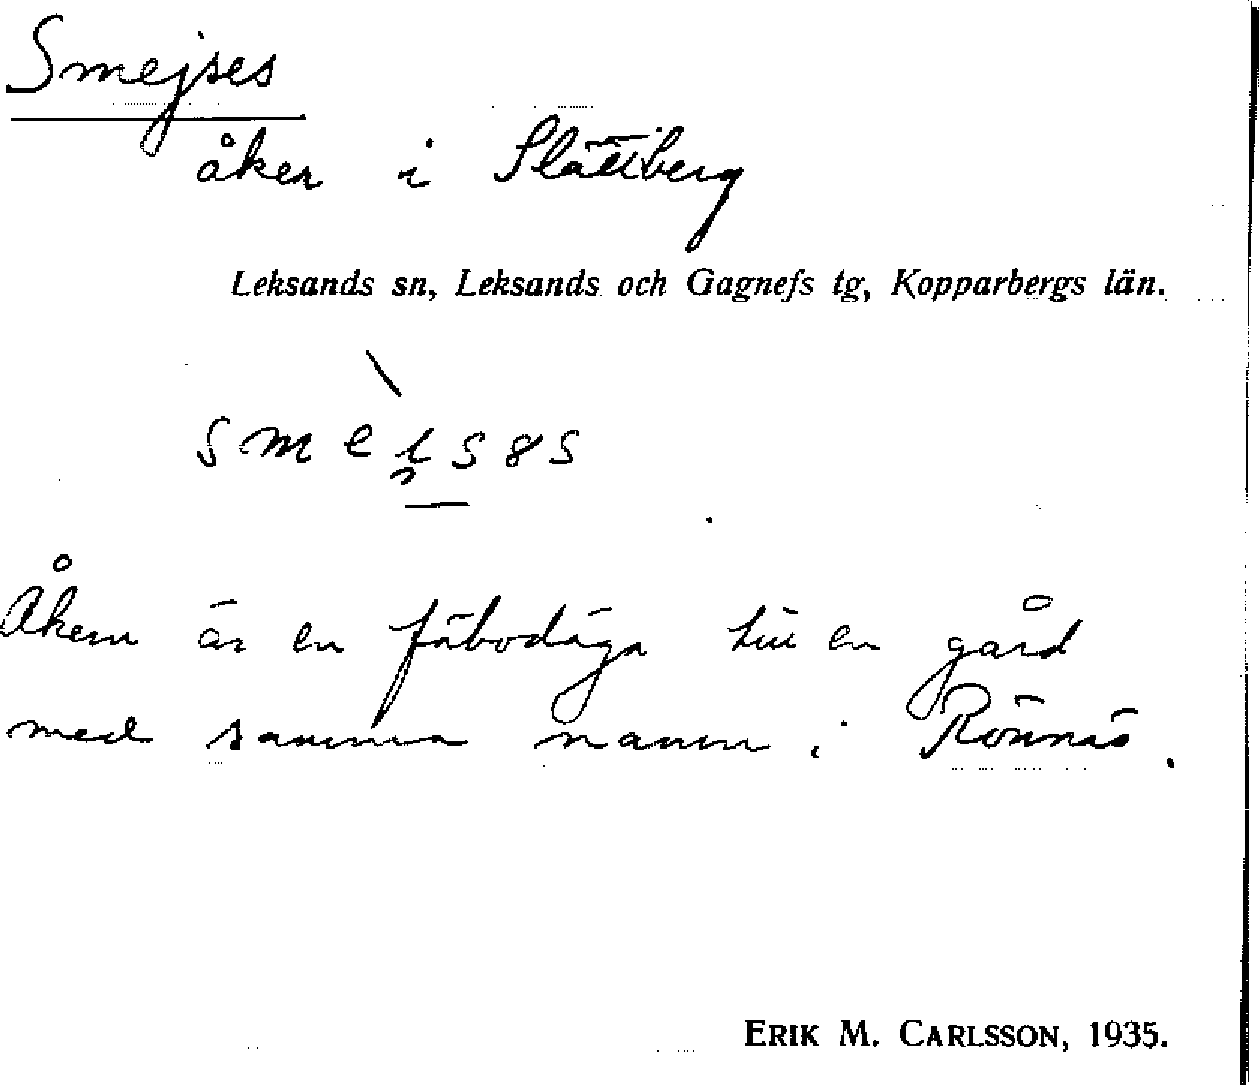 Smejses
åker i Slättberg
Leksands sn, Leksands och Gagnefs tg, Kopparbergs län.
smei̯səs
Åkern är en fäbodäga till en gård
med samma namn i Rönnäs.
ERIK M. CARLSSON, 1935.